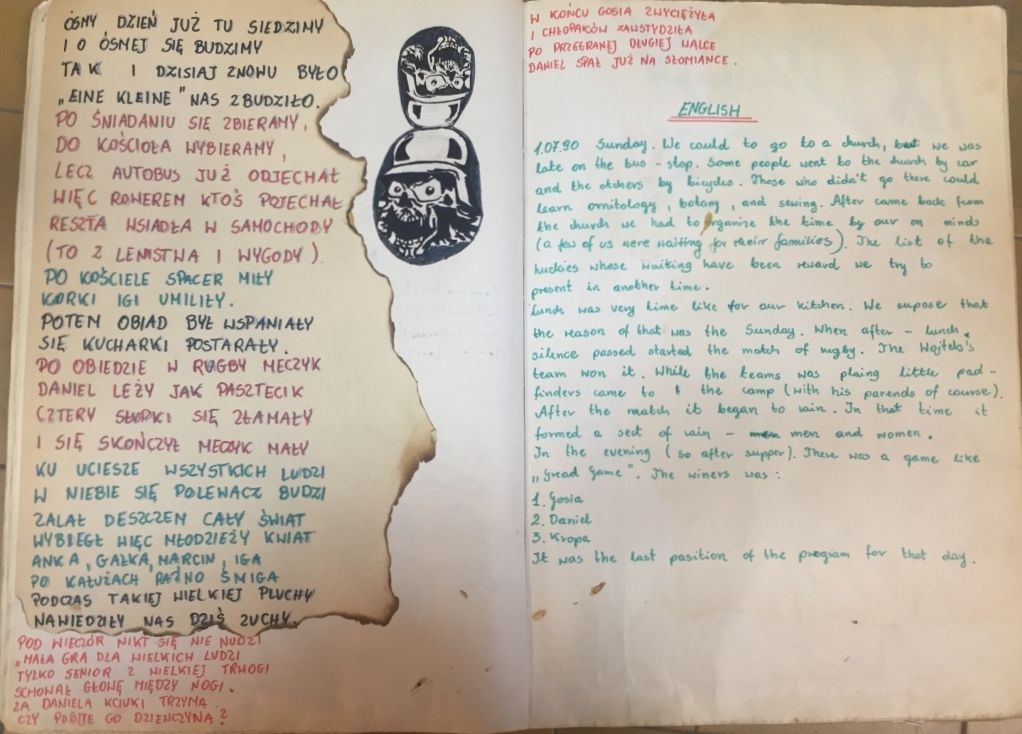 ÓSMY DZIEŃ JUŻ TU SIEDZIMY
I O ÓSMEJ SIĘ BUDZIMY
TAK I DZISIAJ ZNOWU BYŁO
„EINE KLEINE" NAS ZBUDZIŁO.
PO ŚNIADANIU SIĘ ZBIERAMY,
DO KOŚCIOŁA WYBIERAMY,
LECZ AUTOBUS JUŻ ODJECHAŁ
WIĘC ROWEREM KTOŚ POJECHAŁ
RESZTA WSIADŁA W SAMOCHODY
(TO Z LENISTWA I WYGODY).
PO KOŚCIELE SPACER MIŁY
KORKI IGI UMILIŁY.
POTEM OBIAD BYŁ WSPANIAŁY
SIĘ KUCHARKI POSTARAŁY.
PO OBIEDZIE W RUGBY MECZYK
DANIEL LEŻY JAK PASZTECIK
CZTERY SŁUPKI SIĘ ZŁAMAŁY
I SIĘ SKOŃCZYŁ MECZYK MAŁY
KU UCIESZE WSZYSTKICH LUDZI
W NIEBIE SIĘ POLEWACZ BUDZI
ZALAŁ DESZCZEM CAŁY ŚWIAT
WYBIEGŁ WIĘC MŁODZIEŻY KWIAT
ANKA, GAŁKA, MARCIN, IGA
PO KAŁUŻACH RAŹNO ŚMIGA
PODCZAS TAKIEJ WIELKIEJ PLUCHY
NAWIEDZIŁY NAS DZIŚ ZUCHY.
POD WIECZÓR NIKT SIĘ NIE NUDZI
„MAŁA GRA DLA WIELKICH LUDZI
TYLKO SENIOR Z WIELKIEJ TRWOGI
SCHOWAŁ GŁOWĘ MIĘDZY NOGI.
ZA DANIELA KCIUKI TRZYMA
CZY POBIJE GO DZIEWCZYNA?
W KOŃCU GOSIA ZWYCIĘŻYŁA
I CHŁOPAKÓW ZAWSTYDZIŁA
PO PRZEGRANEJ DŁUGIEJ WALCE
DANIEL SPAŁ JUŻ NA SŁOMIANCE.
ENGLISH
1.07.90 Sunday. We could to go to a church, but we was
late on the bus-stop. Some people went to the church by car
and the otchers by bicycles. Those who didn't go there could
learn ornitology, botany, and sewing. After came back from
the church we had to organize the time by our on minds
(a few of us were waiting for their families). The list of the
luckies whose waiting have been reward we try to
present in another time.
Lunch was very time like for our kitchen. We supose that
the reason of that was the Sunday. When after-lunch
silence passed started the match of rugby. The Wojtek's
team won it. While the teams was plaing little pad-
finders came to the camp (with his parends of course).
After the match it began to rain. In that time it
formed a sect of rain - men and women.
In the evening (so after supper). There was a game like
„Gread Game". The winers was:
1. Gosia
2. Daniel
3. Kropa
It was the last position of the program for that day.